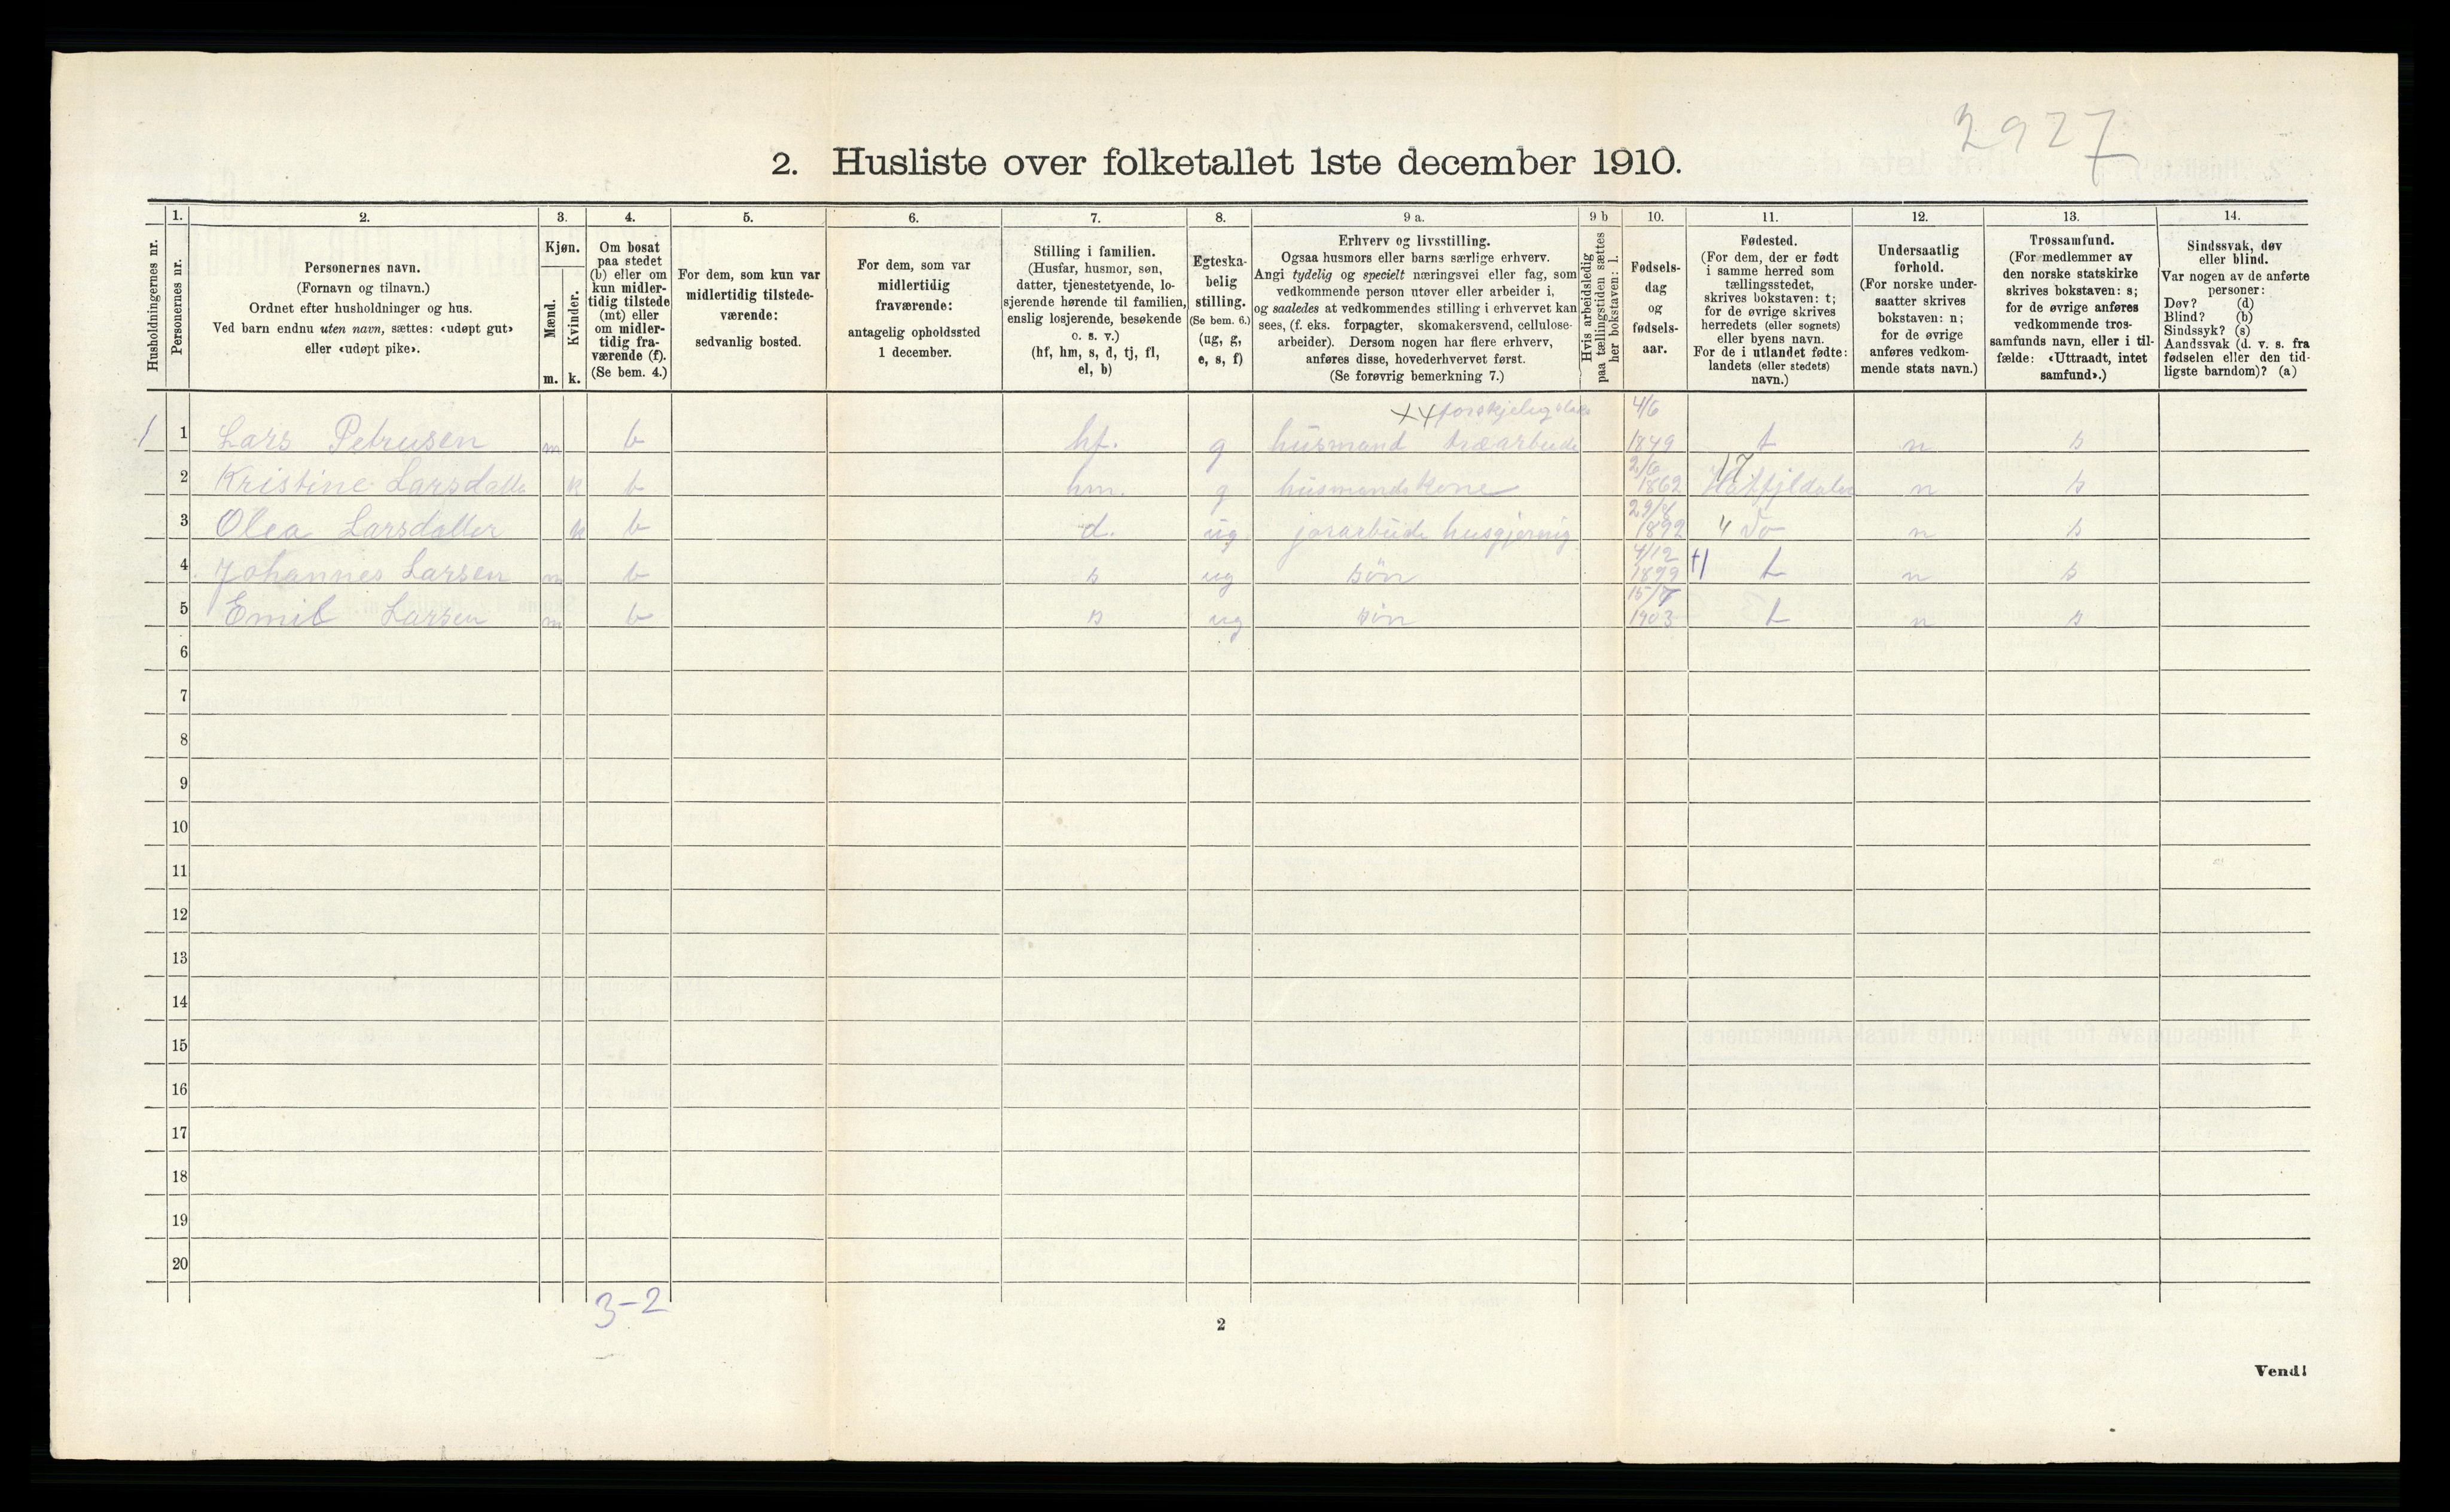 2927
2. Husliste over folketallet 1ste december 1910.
Husholdningernes nr.
1.
Personernes nr.
2.
Personernes navn.
(Fornavn og tilnavn.)
Ordnet efter husholdninger og hus.
Ved barn endnu uten navn, sættes: «udøpt gut»
eller «udøpt pike».
3.
Kjøn.
Mænd.
Kvinder.
m. k.
4.
Om bosat
paa stedet
(b) eller om
kun midler-
tidig tilstede
(mt) eller
om midler-
tidig fra-
værende (f).
(Se bem. 4.)
5.
For dem, som kun var
midlertidig tilstede-
værende:
sedvanlig bosted.
6.
For dem, som var
midlertidig
fraværende:
antagelig opholdssted
1 december.
7.
Stilling i familien.
(Husfar, husmor, søn,
datter, tjenestetyende, lo-
sjerende hørende til familien,
enslig losjerende, besøkende
o. s. v.)
(hf, hm, s, d, tj, fl,
el, b)
8.
Egteska-
belig
stilling.
(Se bem. 6.)
(ug, g,
e, s, f)
9 a.
Erhverv og livsstilling.
Ogsaa husmors eller barns særlige erhverv.
Angi tydelig og specielt næringsvei eller fag, som
vedkommende person utøver eller arbeider i,
og saaledes at vedkommendes stilling i erhvervet kan
sees, (f. eks. forpagter, skomakersvend, cellulose-
arbeider). Dersom nogen har flere erhverv,
anføres disse, hovederhvervet først.
(Se forøvrig bemerkning 7.)
9 b
Hvis arbeidsledig
paa tællingstiden sættes
her bokstaven: l.
10.
Fødsels-
dag
og
fødsels-
aar.
11.
Fødested.
(For dem, der er født
i samme herred som
tællingsstedet,
skrives bokstaven: t;
for de øvrige skrives
herredets (eller sognets)
eller byens navn.
For de i utlandet fødte:
landets (eller stedets)
navn.)
12.
Undersaatlig
forhold.
(For norske under-
saatter skrives
bokstaven: n;
for de øvrige
anføres vedkom-
mende stats navn.)
13.
Trossamfund.
(For medlemmer av
den norske statskirke
skrives bokstaven: s;
for de øvrige anføres
vedkommende tros-
samfunds navn, eller i til-
fælde: «Uttraadt, intet
samfund».)
14.
Sindssvak, døv
eller blind.
Var nogen av de anførte
personer:
Døv? (d)
Blind? (b)
Sindssyk? (s)
Aandssvak (d. v. s. fra
fødselen eller den tid-
ligste barndom)? (a)
1 1 Lars Petrusen m b hf. g husmand træarbeide 4/6 1849 t n s
2 Kristine Larsdatter k b hm. g husmandskone 2/6 1862 Hatfjeldalen n s
3 Olea Larsdatter k b d. ug husgjerning 29/8 1892 Do n s
4 Johannes Larsen m b s ug søn 4/12 1899 t n s
5 Emil Larsen m b s ug søn 15/7 1903 t n s
6
7
8
9
10
11
12
13
14
15
16
17
18
19
20
3-2
2
Vend!